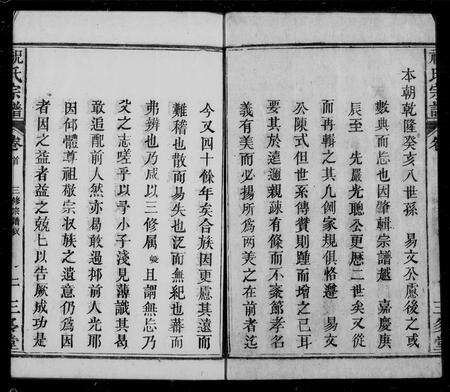 祝氏宗譜
卷
三多堂
本朝乾隆癸亥八世孫 易文公慮後之或
數典而忘也因肇輯宗譜越 嘉慶庚
辰至 先嚴光聰公更歷二世矣又從
而再輯之其凡例家規俱恪遵 易文
公陳式但世系傳贊則踵而增之已耳
要其於遠邇親疎有條而不紊節孝名
義有美而必揚所爲兩美之在前者迄
今又四十餘年矣合族因更慮其遠而
難稽也散而易失也泛而無紀也蕃而
弗辨也乃咸以三修属 且謂無忘乃
父之志嗟乎以予小子淺見薄識其曷
敢追配前人然亦曷敢過抑前人光耶
因仰體尊祖敬宗收族之遺意仍爲因
者因之益者益之兢七以告厥成功是
祝氏宗譜
卷首
三修宗譜敘
二
三多堂